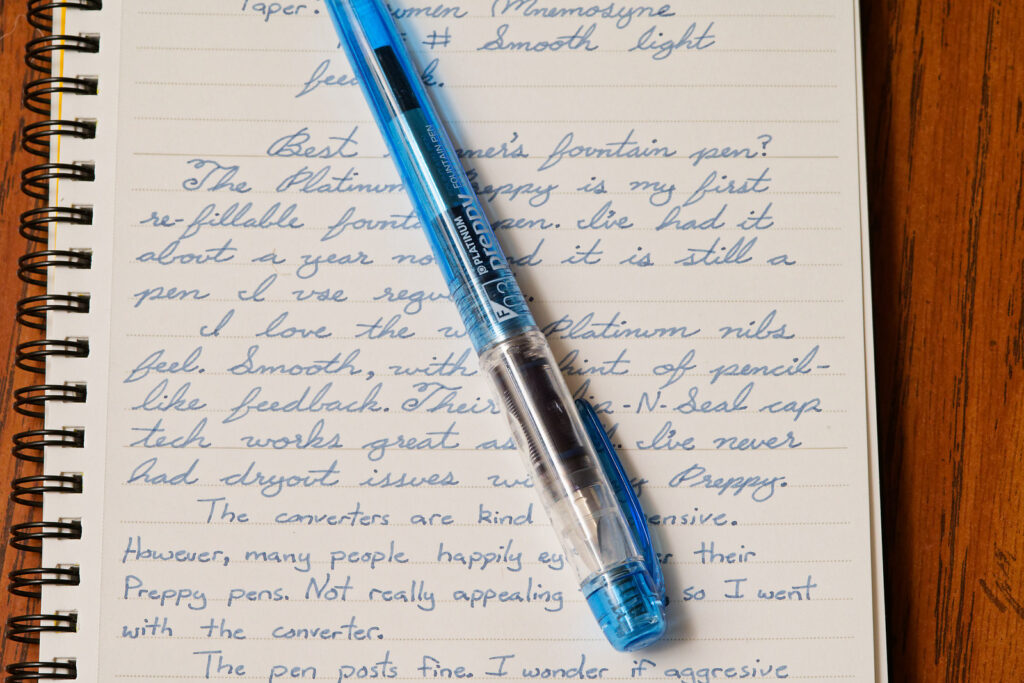 Paper: Mnemosyne
# Smooth light
Best fountain pen?
The Platinum Preppy is my first
re-fillable pen. I've had it
about a year it is still a
pen I use
I love the Platinum nibs
feel. Smooth, with hint of pencil-
like feedback. Their -N-Seal cap
tech works great I've never
had dryout issues Preppy.
The converters are kind
However, many people happily their
Preppy pens. Not really appealing so I went
with the converter.
The pen posts fine. I wonder if aggresive
FOUNTAIN PEN
PLATINUM
preppy
F 03